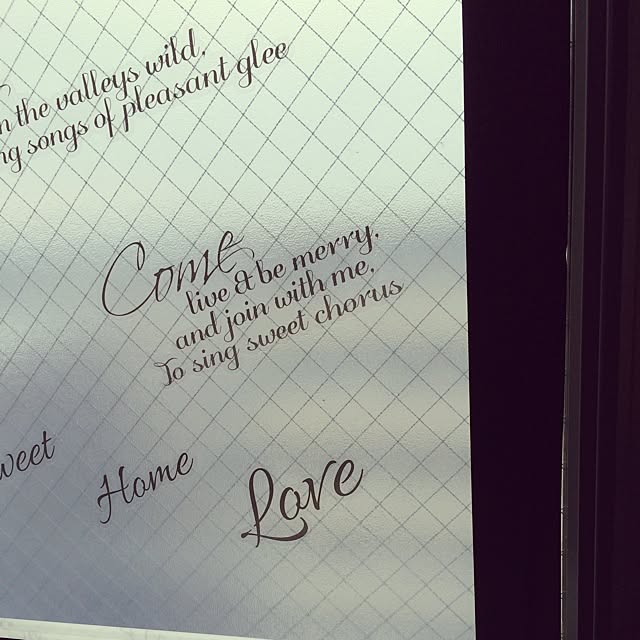 the valleys wild,
songs of pleasant glee
Come
live & be merry,
and join with me,
To sing sweet chorus
Home
Love